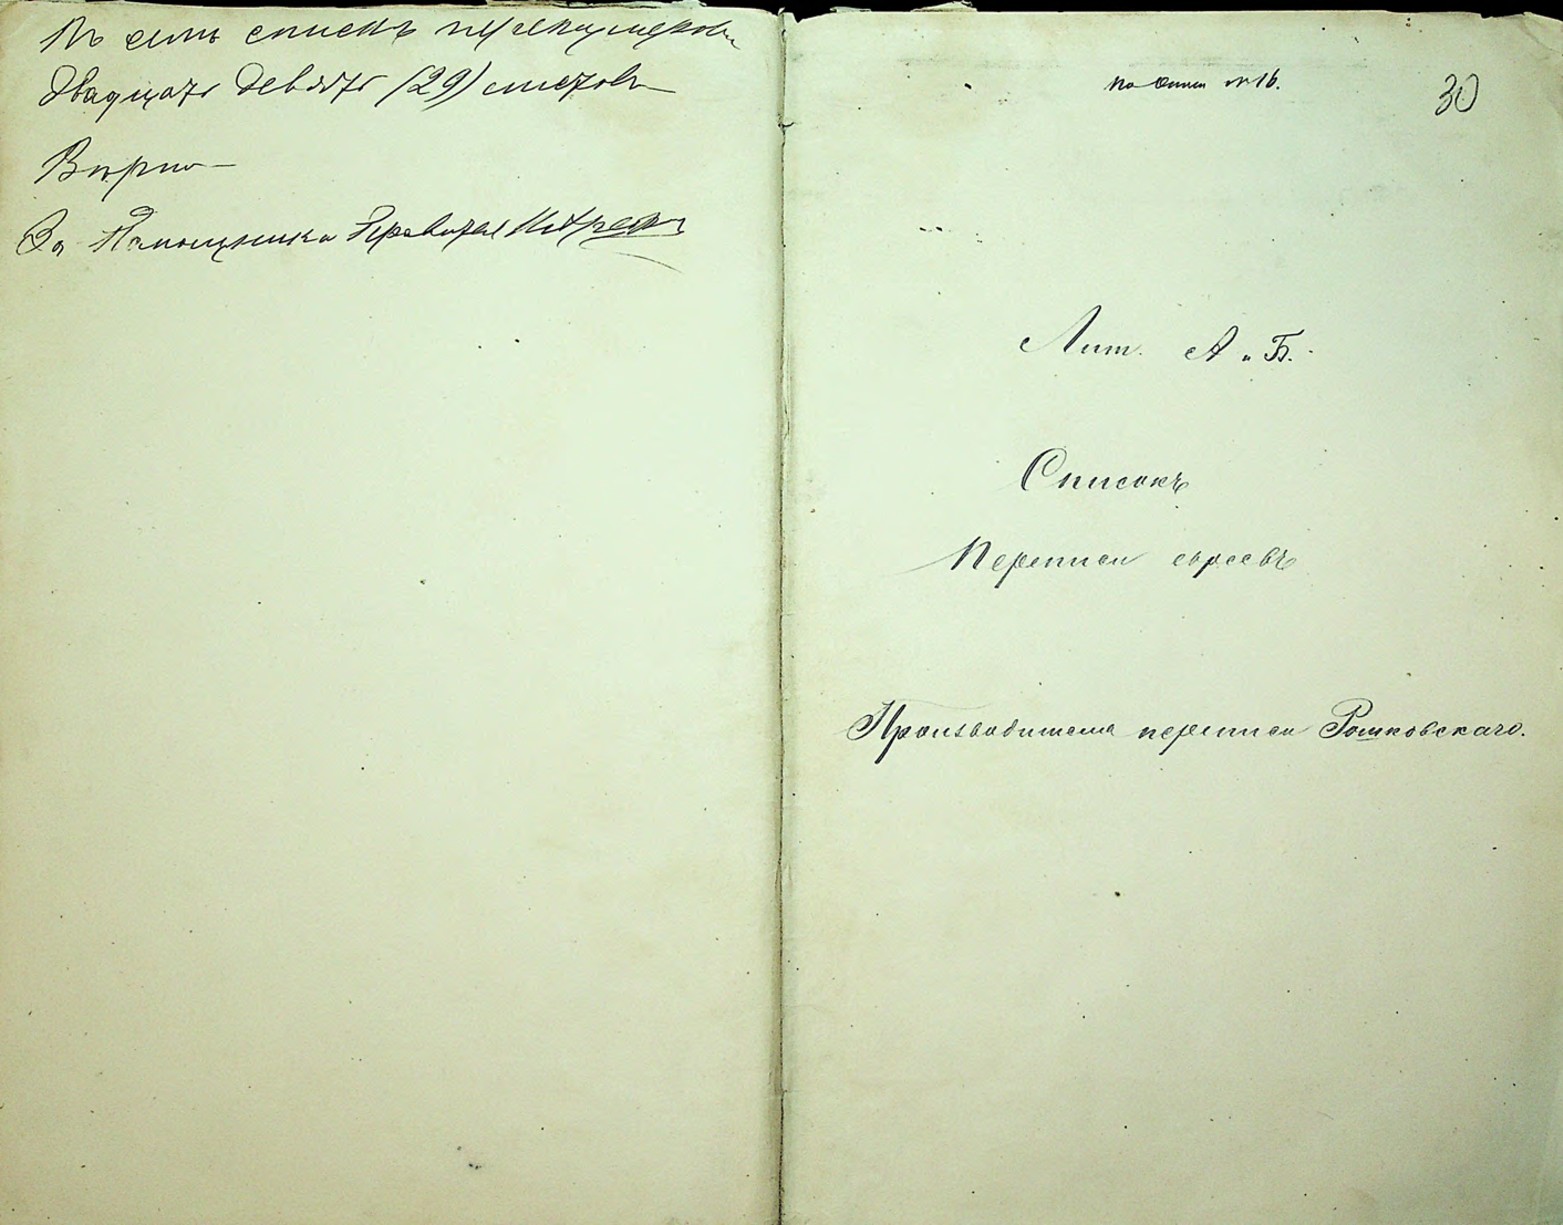 Въ семъ списке пронумеровано
двадцать девять (29) листовъ
Вѣрно
За Помощника Правителя
по описи № 16.
30
Лит. А. Б.
Списокъ
Переписи евреевъ
Производителя переписи Рошковскаго.